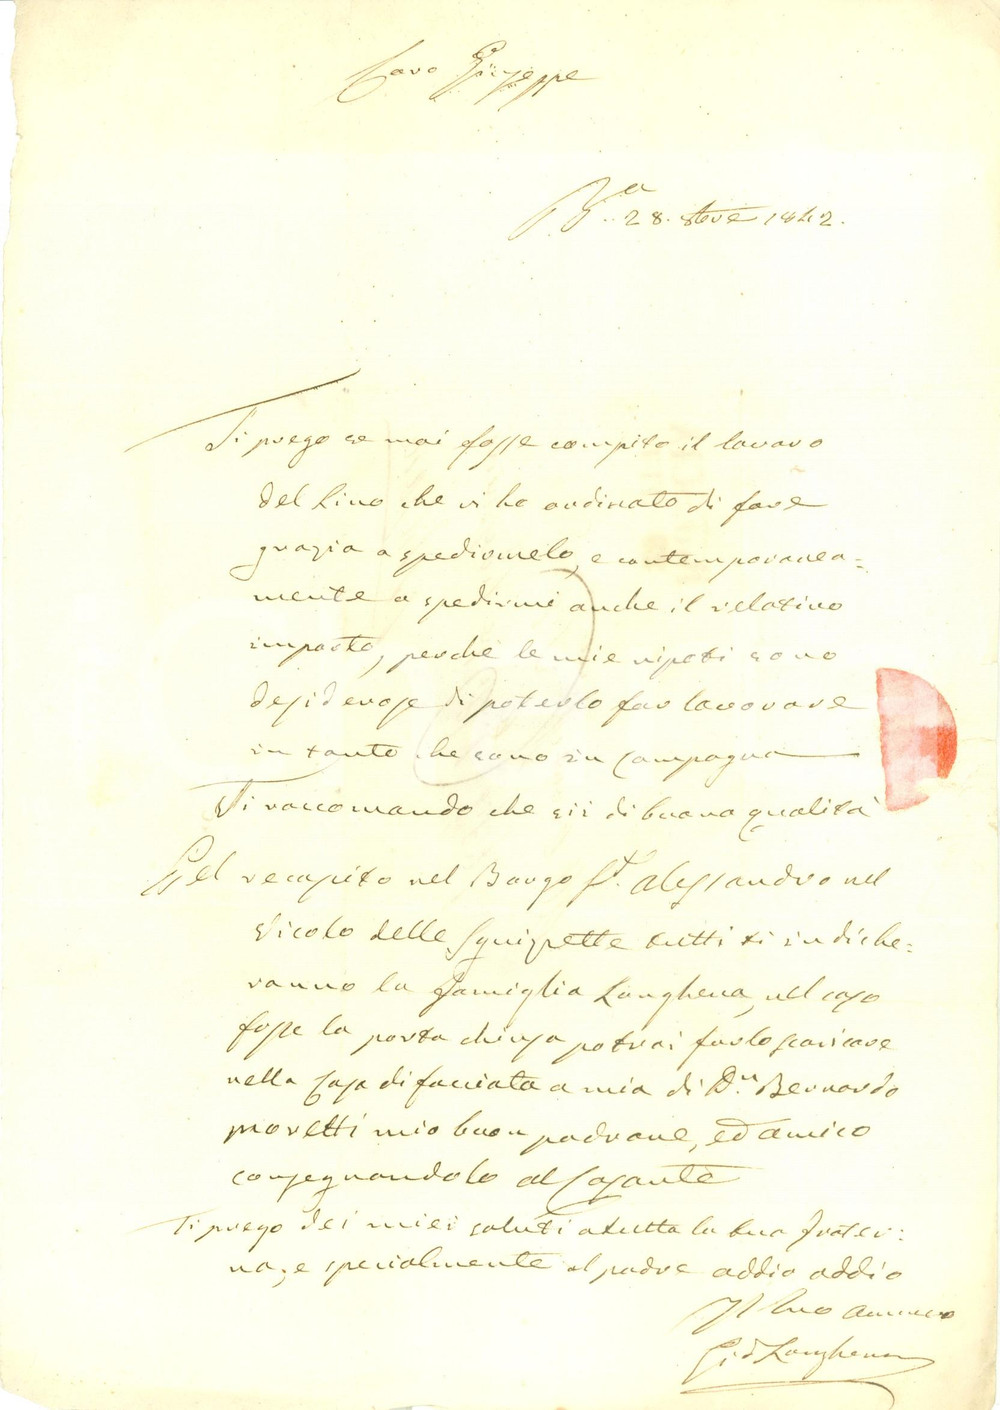 Caro Giuseppe
28. 8bre 1842.
Ti prego se mai fosse compito il lavoro
del Lino che vi ho ordinato di fare
grazia a spedirmelo, e contemporanea=
mente a spedirmi anche il relativo
importo, perchè le mie nipoti sono
desiderose di poterlo far lavorare
in tanto che sono in Campagna
Ti raccomando che sii di buona qualità
Pel recapito nel Borgo St. Alessandro nel
Vicolo delle tutti ti indiche=
ranno la Famiglia Langhena, nel caso
fosse la porta chiusa potrai farlo scaricare
nella Casa di facciata a mia di Dn. Bernardo
Moretti mio buon padrone, ed amico
consegnandolo al
Ti prego dei miei saluti a tutta la tua frater=
na, e specialmente al padre addio addio
Il tuo
Langhena